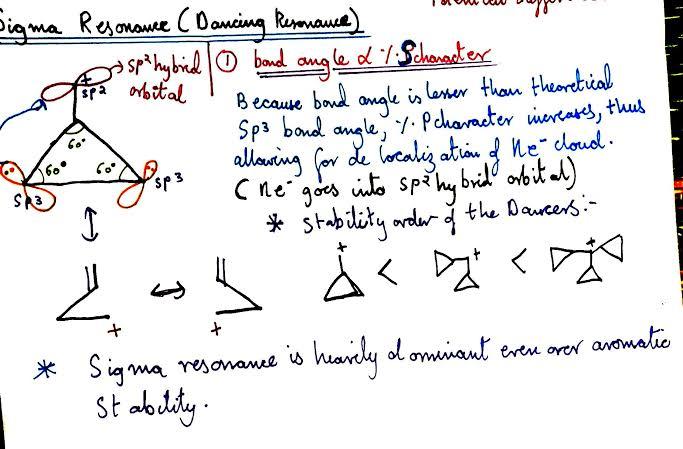 Sigma Resonance (Dancing Resonance)
+ → sp² hybrid
sp2 orbital
60°
60° 60°
sp3 sp3
① bond angle α %. Scharacter
Because bond angle is lesser than theoretical
Sp3 bond angle, %. Pcharacter increases, thus
allowing for de localization of ne⁻ cloud.
(ne⁻ goes into sp² hybrid orbital)
* Stability order of the Dancers:-
+ < + < +
↔
+ +
* Sigma resonance is heavily dominant even over aromatic
Stability.